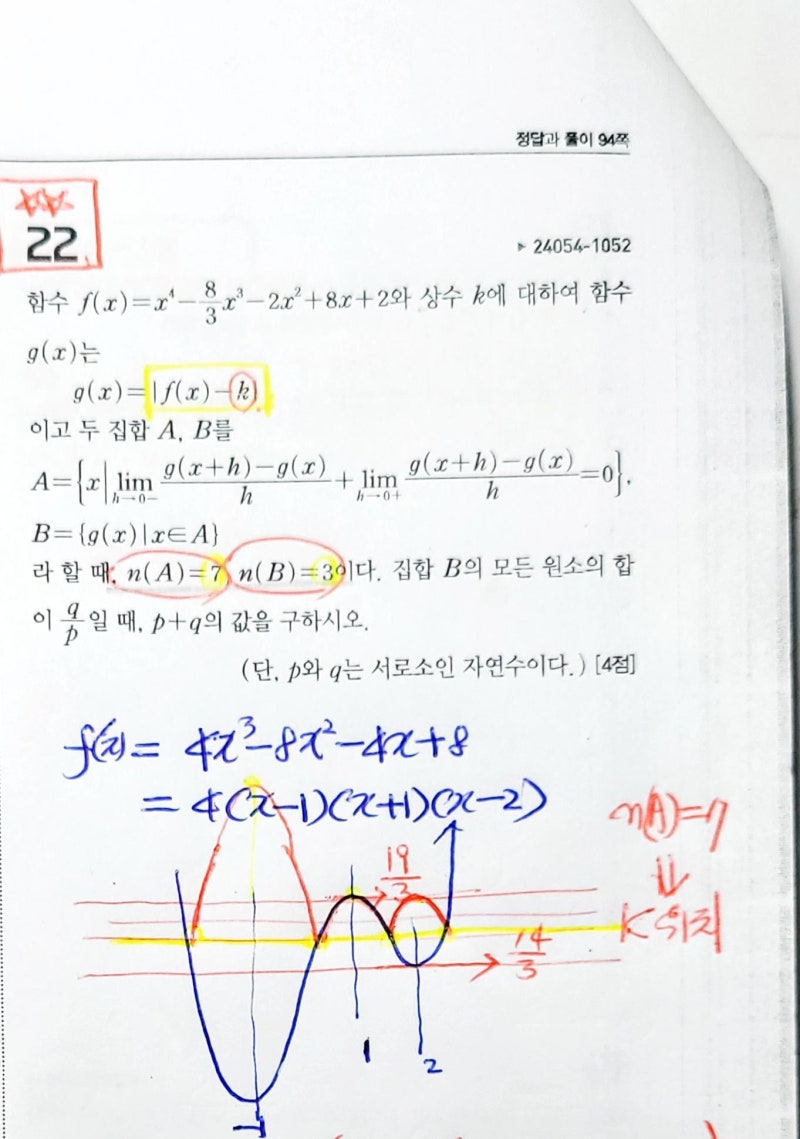 정답과 풀이 94쪽
22
▶ 24054-1052
함수 f(x)=x⁴-8/3x³-2x²+8x+2와 상수 k에 대하여 함수
g(x)는
g(x)=|f(x)-k|
이고 두 집합 A, B를
A={x| lim h→0- g(x+h)-g(x)/h + lim h→0+ g(x+h)-g(x)/h =0},
B={g(x)|x∈A}
라 할 때, n(A)=7, n(B)=3이다. 집합 B의 모든 원소의 합
이 q/p일 때, p+q의 값을 구하시오.
(단, p와 q는 서로소인 자연수이다.) [4점]
f'(x)= 4x³-8x²-4x+8
= 4(x-1)(x+1)(x-2)
n(A)=7
⇓
K 위치
19/3
14/3
1
2
-1